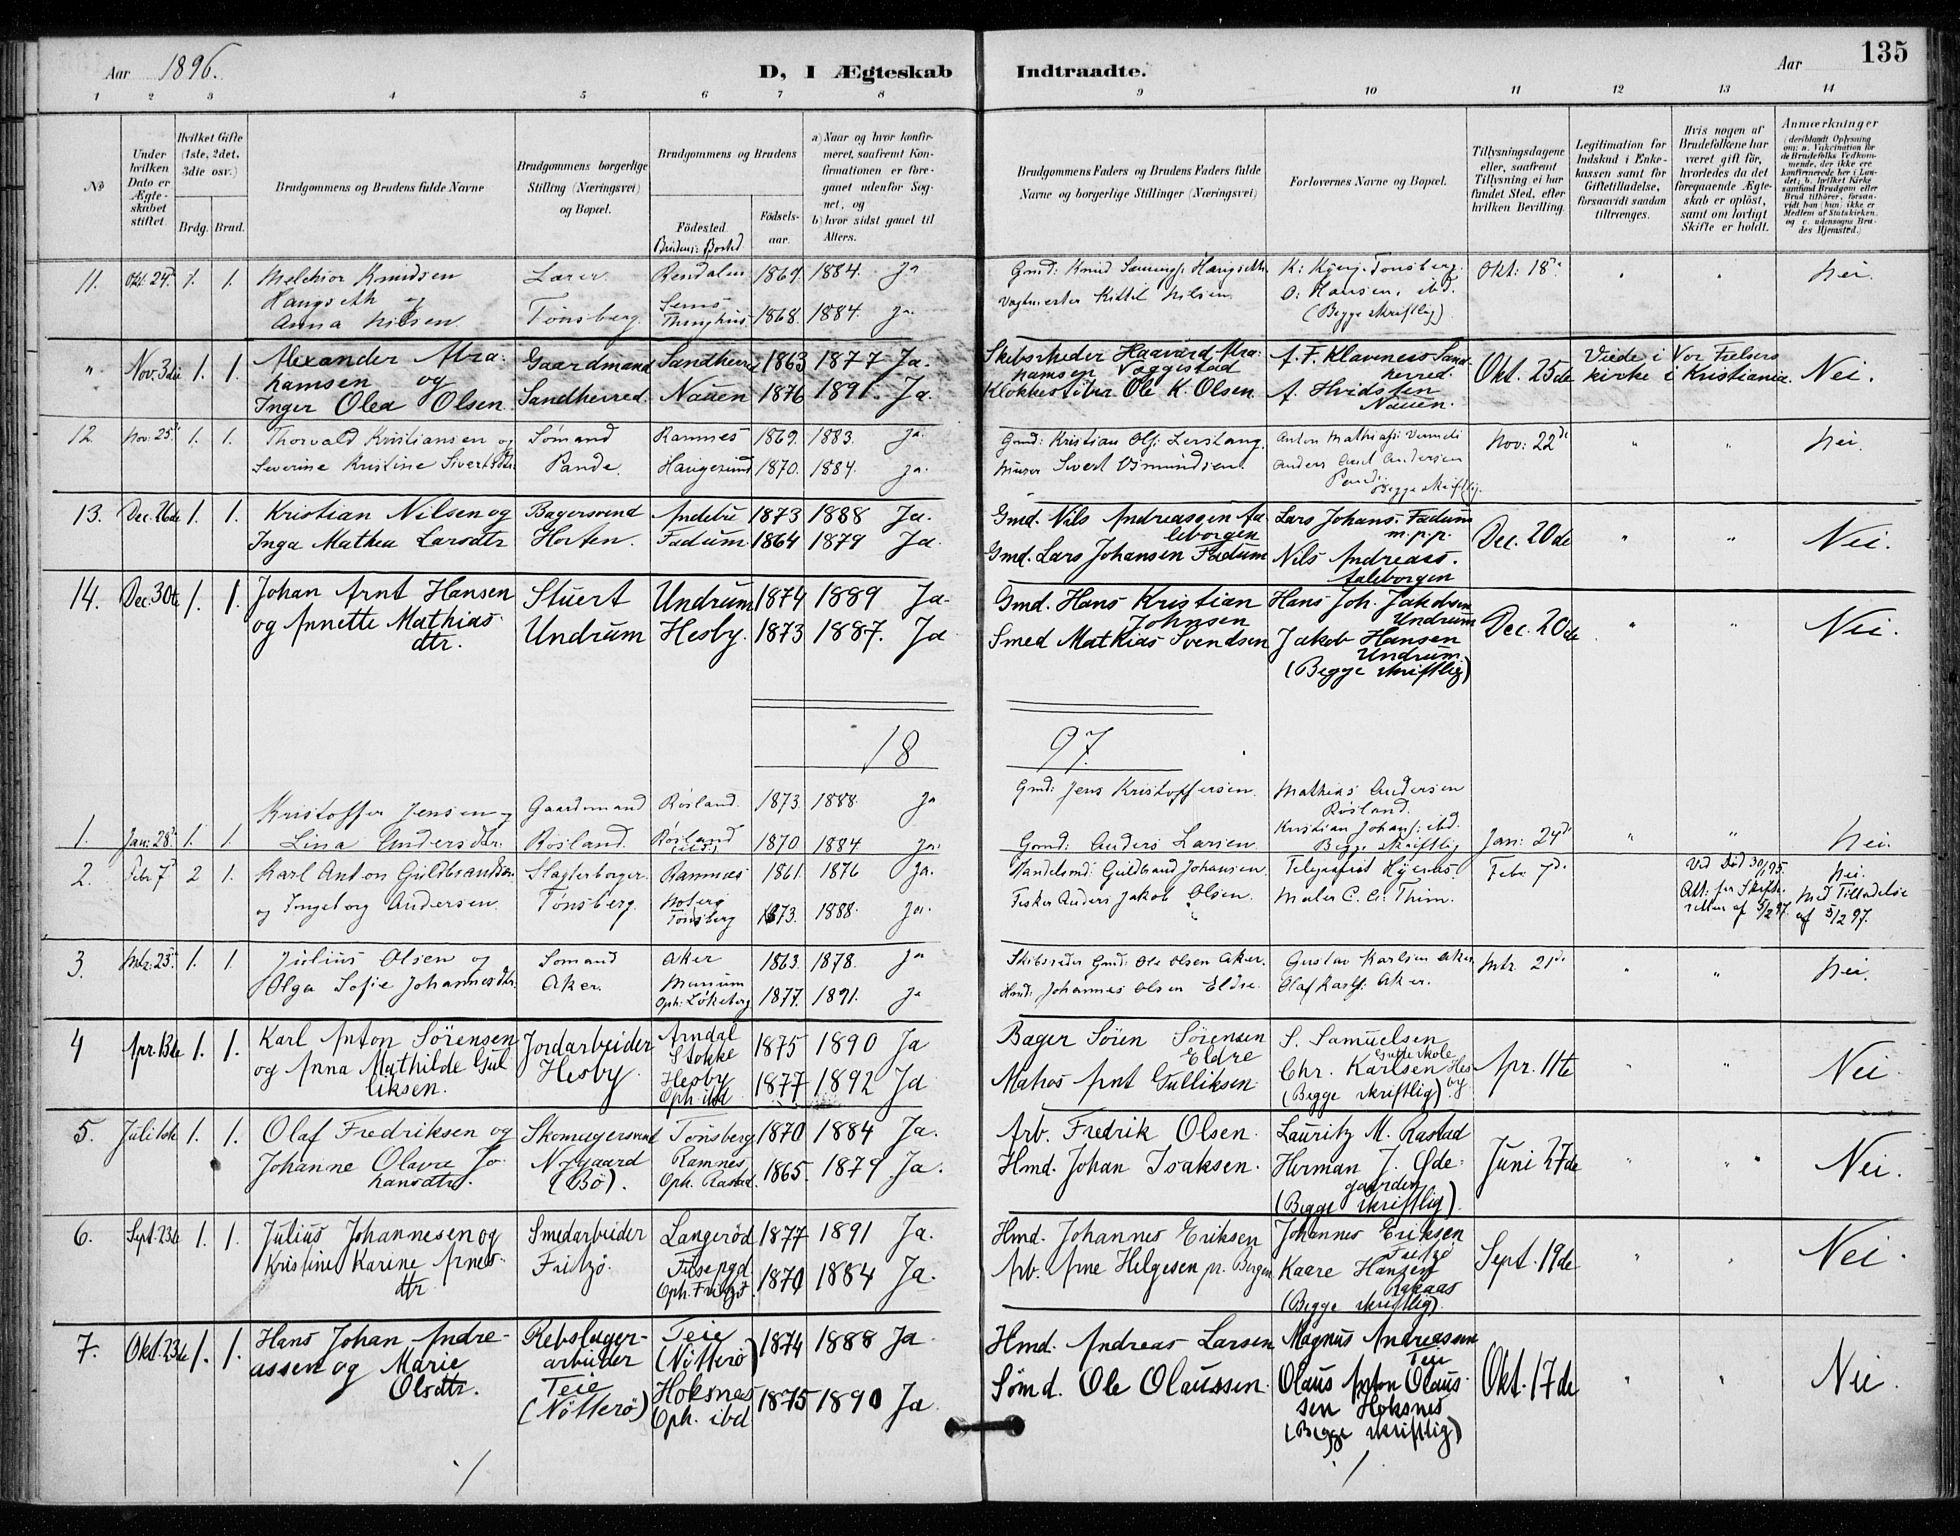 Aar 1896. D, I Ægteskab Indtraadte. Aar 135
1 2 3 4 5 6 7 8 9 10 11 12 13 14
No
Under hvilken Dato er Ægteskabet stiftet.
Hvilket Gifte (1ste, 2det, 3die osv.)
Brdg. Brud.
Brudgommens og Brudens fulde Navne
Brudgommens borgerlige Stilling (Næringsvei) og Bopæl.
Brudgommens og Brudens
Fødested.
Brudens: Bosted
Fødselsaar.
a) Naar og hvor konfirmeret, saafremt Konfirmationen er foregaaet udenfor Sognet, og
b) hvor sidst gaaet til Alters.
Brudgommens Faders og Brudens Faders fulde Navne og borgerlige Stillinger (Næringsvei)
Forlovernes Navne og Bopæl.
Tillysningsdagene eller, saafremt Tillysning ei har fundet Sted, efter hvilken Bevilling.
Legitimation for Indskud i Enkekassen samt for Giftetilladelse, forsaavidt saadan tiltrænges.
Hvis nogen af Brudefolkene har været gift før, hvorledes da det foregaaende Ægteskab er opløst, samt om lovligt Skifte er holdt.
Anmærkninger
(deriblandt Oplysning om: a. Vakcination for de Brudefolks Vedkommende, der ikke ere konfirmerede her i Landet; b. hvilket Kirkesamfund Brudgom eller Brud tilhører, forsaavidt han (hun) ikke er Medlem af Statskirken, og c. udensogns Brudes Hjemsted.)
11. Okt. 24d 1. 1. Melchior Knudsen Lærer Rendalen 1869. 1884. Ja Gmd: Knud Hangseth K: Kjær Tønsberg. Okt: 18de " " Nei.
Hangseth og Anna Nilsen. Tønsberg. Sems Thinghus 1868. 1884. Ja. Vognmester Kittel Nilsen O: Hansen, ibd. (Begge skriftlig)
" Nov. 3die 1. 1. Alexander Abra- Gaardmand Sandherred 1863 1877 Ja. Skibsrheder Haavard Abra- A. F. Klaveness Sand- Okt. 25de Viede i Vor Frelsers Nei.
hamsen og hamsen herred. kirke i Kristiania.
Inger Olea Olsen. Sandherred. Nauen 1876 1891. Ja. Ole K. Olsen. A. Hvidsten Nauen.
12. Nov: 25d 1. 1. Thorvald Kristiansen og Sømand Ramnes 1869. 1883. Ja. Gmd: Kristian Ols: Anton Mathias: Nov: 22de " " Nei.
Severine Kristine Sivertsdtr. Pande. Haugesund 1870. 1884. Ja. Murer Sivert Anders Andersen Pande. Begge skriftlig.
13. Dec. 26de 1. 1. Kristian Nilsen og Bagersvend Andebu 1873 1888 Ja. Gmd. Nils Andreassen Aa- Lars Johans. Fadum Dec. 20de " " Nei.
leborgen m.p.p.
Inga Mathea Larsdtr Horten. Fadum 1864 1879 Ja. Gmd. Lars Johansen Fadum Nils Andreass. Aaleborgen
14. Dec. 30te 1. 1. Johan Arnt Hansen Stuert Undrum 1874 1889 Ja. Gmd. Hans Kristian Hans Joh. Jakobsen Dec. 20de " " Nei.
Johnsen Undrum
og Annette Mathias- Undrum Hesby. 1873 1887. Ja Smed Mathias Svendsen Jakob Hansen
dtr. Undrum. (Begge skriftlig)
18 97.
Kristoffer Jensen og Gaardmand Røsland. 1873. 1888. Ja Gmd: Jens Kristoffersen. Mathias Andersen Røsland.
1. Jan: 28d 1. 1. Lina Andersdtr. Røsland. Røsland 1870 1884 Ja. Gmd: Anders Larsen. Kristian Johans: ibd. Begge skriftlig Jan: 24de " " Nei.
2. Febr 7d 2 1. Karl Anton Guldbrandsen Slagterborger. Ramnes 1861. 1876 Ja. Handelsmd: Guldbrand Johansen. Telegrafist Febr. 7de Ved Død 30/1 95. Nei.
og Ingeborg Andersen. Tønsberg. Tønsberg 1873. 1888. Ja. Fisker Anders Jakob Olsen. Maler C. A. Thim. Att: fra Skifteretten af 5/2 97. Med Tilladelse af 5/2 97.
3. Mts: 25d. 1. 1. Julius Olsen og Sømand Aker 1863. 1878. Ja Skibsreder Gmd: Ole Olsen Aker. Gustav Karlsen Aker Mts 21de " " Nei.
Olga Sofie Johannesdtr. Aker. Oph: 1877. 1891. Ja Hmd: Johannes Olsen Eldre. Olaf Karls: Aker.
4 Apr. 13de 1. 1. Karl Anton Sørensen Jordarbeider Arndal Stokke 1875 1890 Ja Bager Søren Sørensen S. Samuelsen Apr. 11te " " Nei.
Eldre
og Anna Mathilde Gul- Hesby. Hesby 1877 1892 Ja Matros Arnt Gulliksen. Chr. Karlsen Hesby
liksen. Oph. ibd (Begge skriftlig).
5. Juli 1ste 1. 1. Olaf Fredriksen og Skomagersvend Tønsberg 1870 1884 Ja. Arb. Fredrik Olsen. Lauritz M. Rastad Juni 27de " " Nei.
Johanne Olava Jo- Nøgaard Ramnes 1865. 1879. Ja. Hmd. Johan Isaksen. Herman J. Øde-
hansdtr. (Bø). Oph. Rastad. gaarden (Begge skriftlig).
6. Sept. 23de 1. 1. Julius Johannesen og Smedarbeider Langerød 1877 1891 Ja. Hmd. Johannes Eriksen Johannes Eriksen Sept. 19de " " Nei.
Kristine Karine Arnes- Fritzø. 1870 1884 Ja. Arb. Arne Helgesen pr. Bergen Kaare Hansen
dtr. Oph. Fritzø. (Begge skriftlig).
7. Okt. 23de 1. 1. Hans Johan Andre- Rebslager- Teie 1874 1888 Ja Hmd. Andreas Larsen Magnus Andreassen Okt. 17de " " Nei.
assen og Marie arbeider (Nøtterø) Teie
Olsdtr. Teie Hoksnes 1875 1890 Ja. Sømd. Ole Olaussen. Olaus Anton Olaus-
(Nøtterø) Oph. ibd sen Hoksnes
(Begge skriftlig)